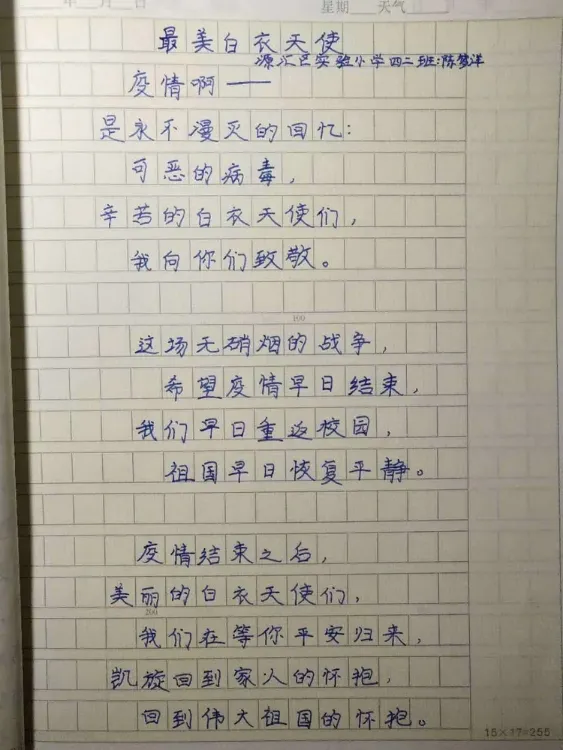 年 月 日 星期 天气
最美白衣天使
源汇区实验小学四二班:陈梦洋
疫情啊——
是永不漫灭的回忆:
可恶的病毒,
辛苦的白衣天使们,
我向你们致敬。
100
这场无硝烟的战争,
希望疫情早日结束,
我们早日重返校园,
祖国早日恢复平静。
疫情结束之后,
美丽的白衣天使们,
200
我们在等你平安归来,
凯旋回到家人的怀抱,
回到伟大祖国的怀抱。
15×17=255